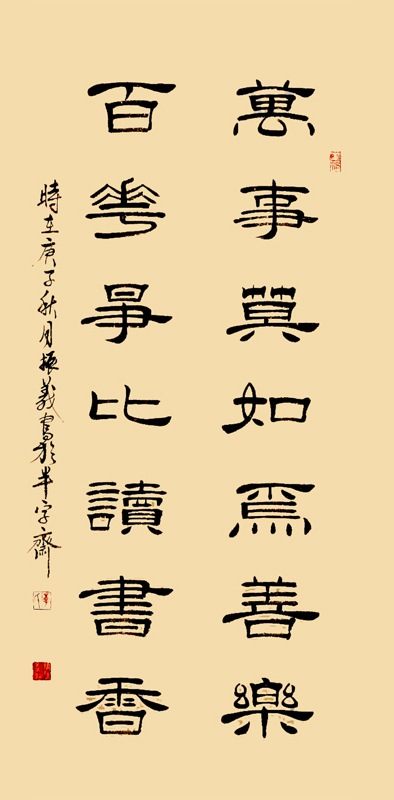 萬事莫如爲善樂
百華爭比讀書香
時在庚子秋月振義寫於半字齋